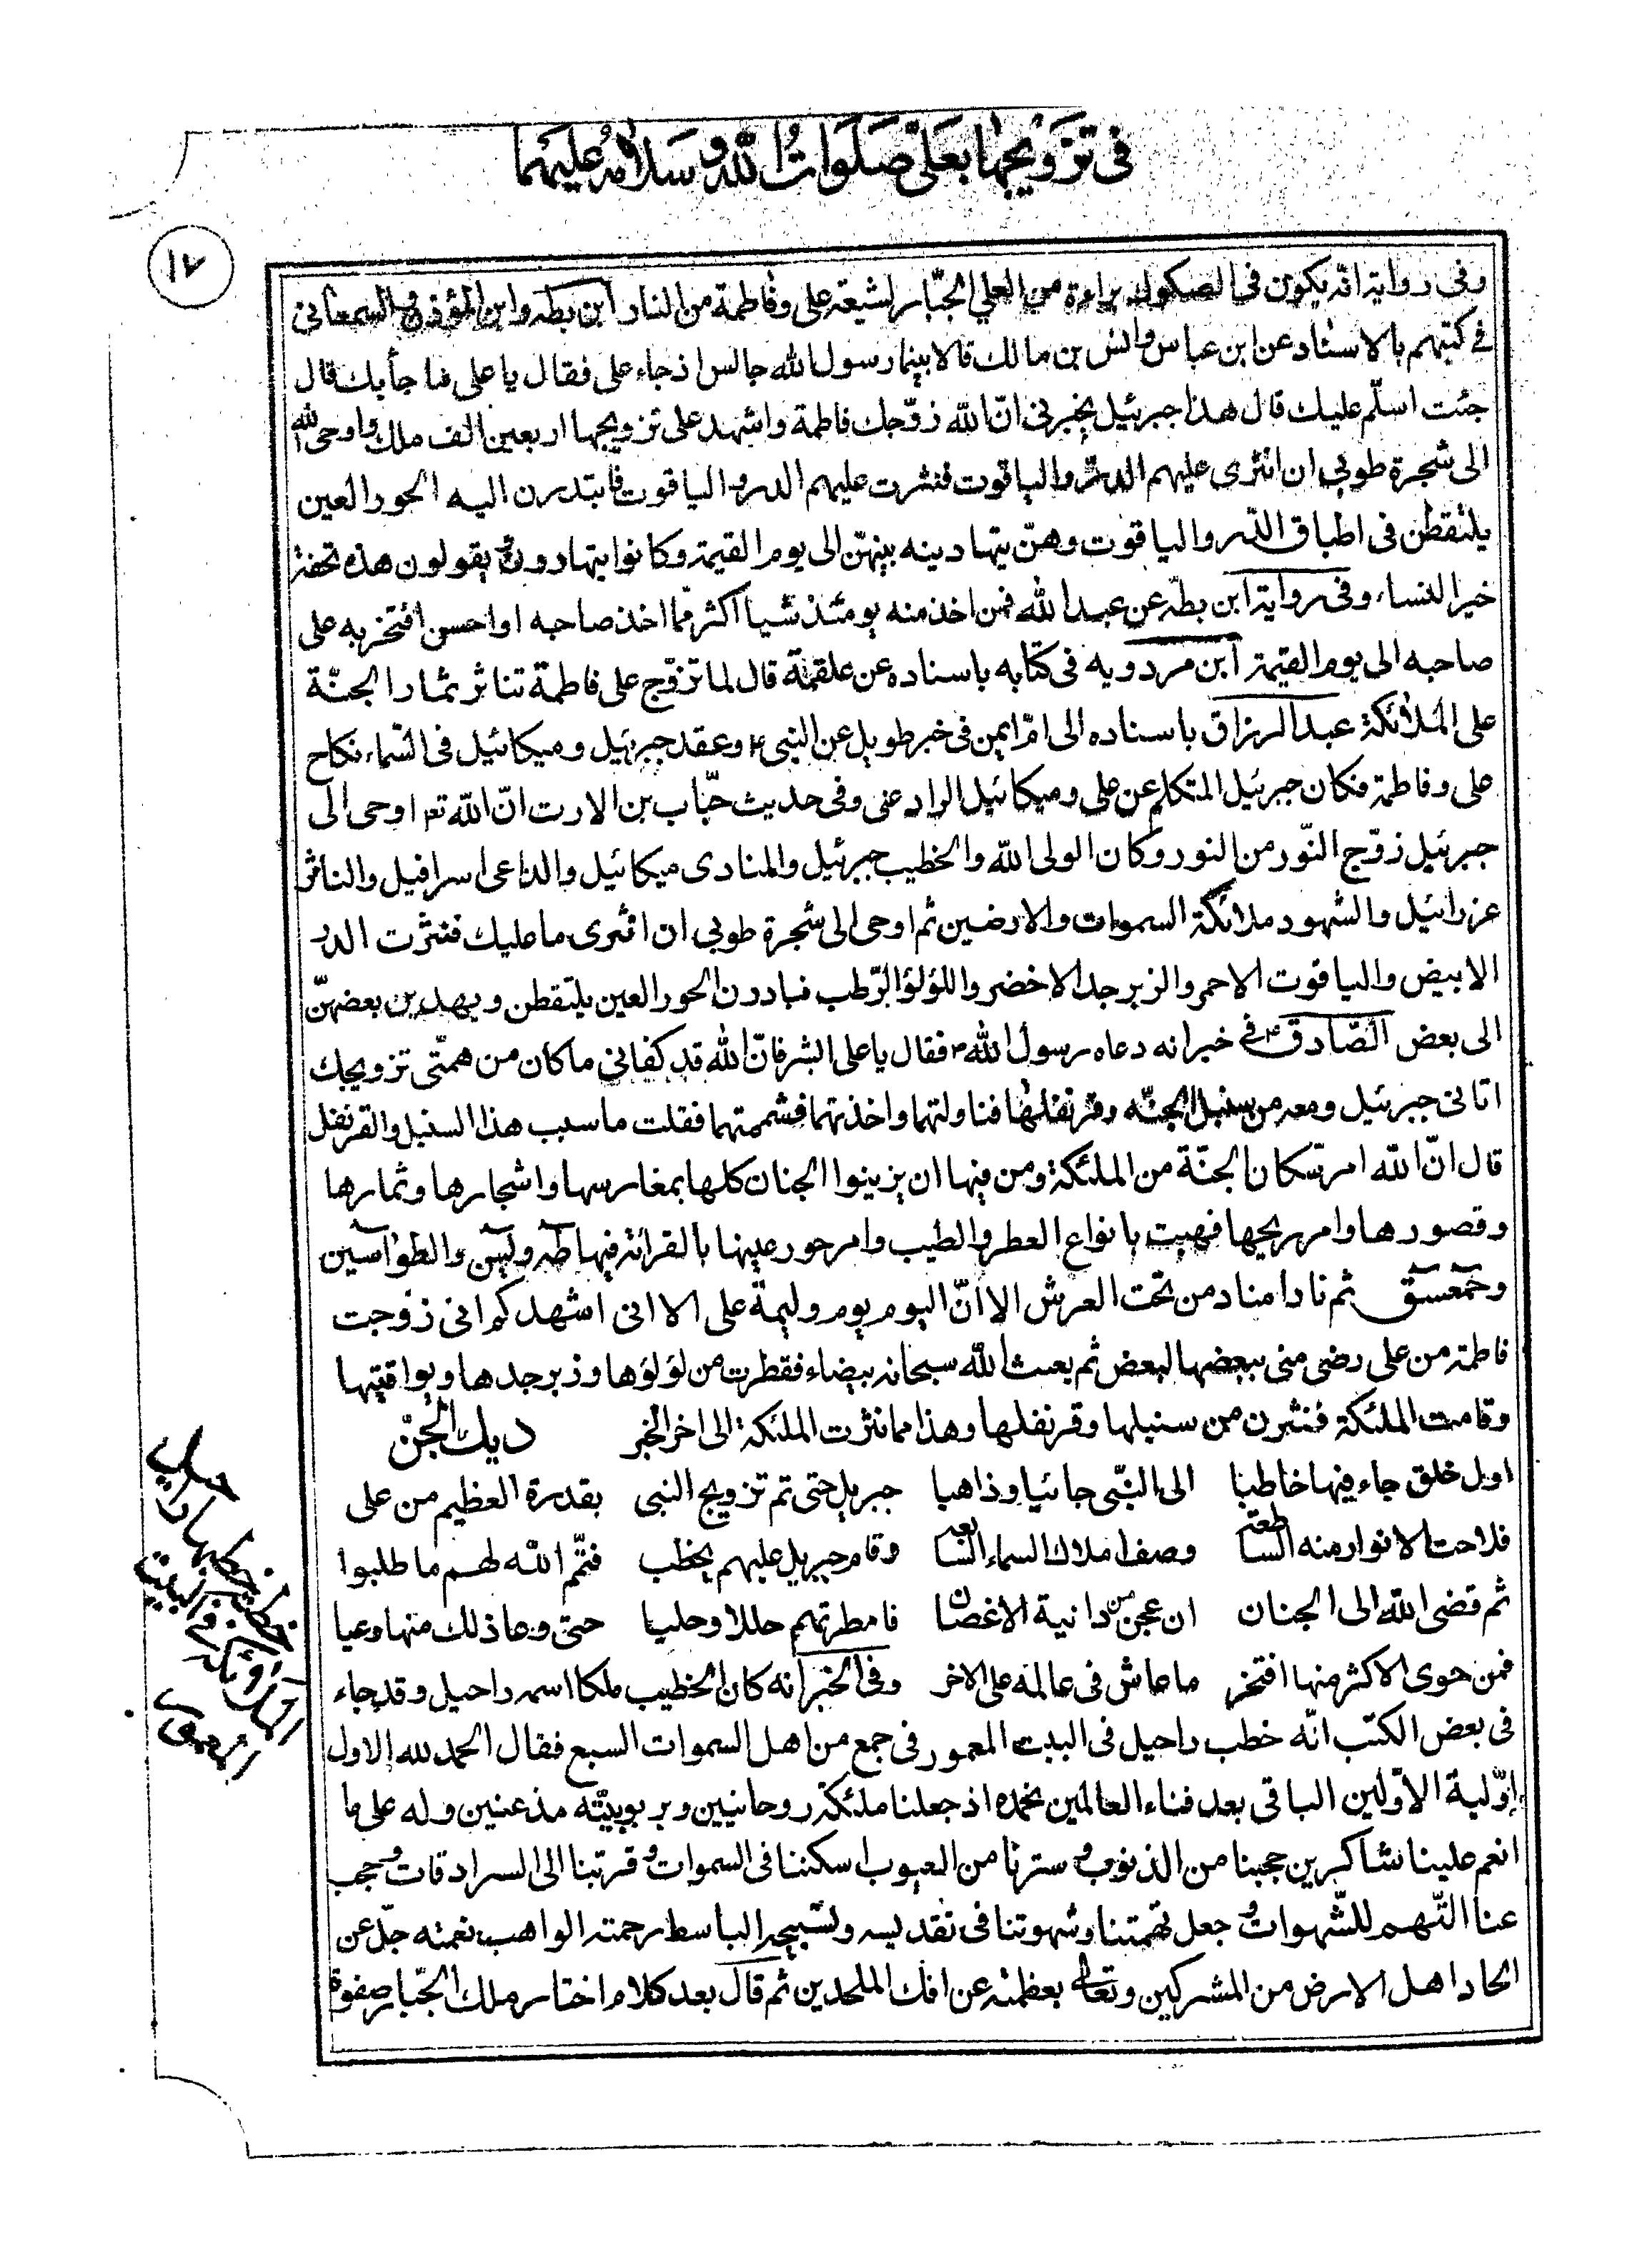 في تزويجها بعلى صلوات الله وسلامه عليهما
١٧
وفى رواية انّه يكون في الصكوك براءة من العلي الجبّار لشيعة على وفاطمة من النار ابن بطه وابن المؤذن والسمعانى
في كتبهم بالاسناد عن ابن عباس وانس بن مالك قالا بينما رسول الله جالس اذ جاء على فقال يا على ما جأ بك قال
جئت اسلّم عليك قال هذا جبرئيل يخبرنى انّ الله زوّجك فاطمة واشهد على تزويجها اربعين الف ملك واوحى الله
الى شجرة طوبى ان انثرى عليهم الدرّ والياقوت فنثرت عليهم الدر والياقوت فابتدرن اليه الحور العين
يلتقطن فى اطباق الدّر والياقوت وهنّ يتهادينه بينهنّ الى يوم القيمة وكانوا يتهادون ويقولون هذه تحفة
خير النساء وفى رواية ابن بطّه عن عبد الله فمن اخذ منه يومئذ شيا اكثر ممّا اخذ صاحبه او احسن افتخر به على
صاحبه الى يوم القيمة ابن مردويه فى كتابه باسناده عن علقمة قال لما تزوّج على فاطمة تناثر ثمار الجنّة
على الملائكة عبد الرزاق باسناده الى امّ ايمن فى خبر طويل عن النبى ٢ وعقد جبرئيل وميكائيل فى السّماء نكاح
على وفاطمة فكان جبرئيل المتكلم عن على وميكائيل الراد عنى وفى حديث خبّاب بن الارت انّ الله تع اوحى الى
جبرئيل زوّج النّور من النور وكان الولى الله والخطيب جبرئيل والمنادى ميكائيل والداعى اسرافيل والناثر
عزرائيل والشهود ملائكة السموات والارضين ثم اوحى الى شجرة طوبى ان انثرى ما عليك فنثرت الدر
الابيض والياقوت الاحمر والزبرجد الاخضر واللؤلؤ الرّطب فبادرن الحور العين يلتقطن ويهدين بعضهنّ
الى بعض الصّادق ع فى خبر انه دعاه رسول الله ٢ فقال يا على ابشر فانّ الله قد كفانى ما كان من همّتى تزويجك
اتانى جبرئيل ومعه من سنبل الجنّه وقرنفلها فناولتهما واخذتهما فشممتهما فقلت ما سبب هذا السنبل والقرنفل
قال انّ الله امر سكان الجنّة من الملئكة ومن فيها ان يزينوا الجنان كلها بمغارسها واشجارها وثمارها
وقصورها وامر ريحها فهبت بانواع العطر والطيب وامر حور عينها بالقرائة فيها طه ويس والطواسين
وحمعسق ثم نادا مناد من تحت العرش الا انّ اليوم يوم وليمة على الا انى اشهدكم انى زوجت
فاطمة من على رضى منى ببعضها لبعض ثم بعث الله سبحانه بيضاء فقطرت من لؤلؤها وزبرجدها ويواقيتها
وقامت الملئكة فنثرن من سنبلها وقرنفلها وهذا مما نثرت الملئكة الى اخر الخبر ديك الجنّ
اول خلق جاء فيها خاطبا الى النبّى جائيا وذاهبا جبريل حتى تم تزويج النبى بقدرة العظيم من على
فلاحت الانوار منه الساطعة وصف املاك السماء السابعة وقام جبريل عليهم يخطب فتمّم الله لهم ما طلبوا
ثم قضى الله الى الجنان ان عجن من دانية الاغصان فامطرتهم حللا وحليا حتى وعا ذلك منها وعيا
فمن حوى الاكثر منها افتخر ما عاش فى عالمه على الاخر وفى الخبر انه كان الخطيب ملكا اسمه راحيل وقد جاء
فى بعض الكتب انّه خطب راحيل فى البيت المعمور فى جمع من اهل السموات السبع فقال الحمد لله الاول
اوّلية الاوّلين الباقى بعد فناء العالمين نحمده اذ جعلنا ملئكة روحانيين وبربوبيّته مذعنين وله على ما
انعم علينا شاكرين حجبنا من الذنوب وسترنا من العيوب اسكننا فى السموات وقربنا الى السرادقات وحجب
عنا النّهم للشّهوات وجعل نهمتنا وشهوتنا فى تقديسه وتسبيحه الباسط رحمته الواهب نعمته جلّ عن
الحاد اهل الارض من المشركين وتعالى بعظمته عن افك الملحدين ثم قال بعد كلام اختار ملك الجبّار صفوة